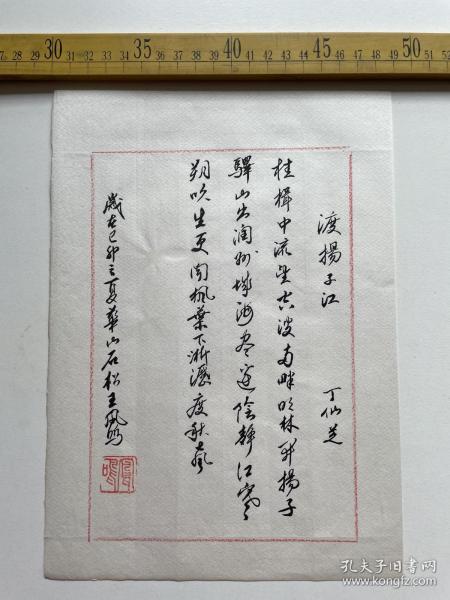 27 28 29 30 31 32 33 34 35 36 37 38 39 40 41 42 43 44 45 46 47 48 49 50 51 52
渡揚子江 丁仙芝
桂楫中流望空波兩畔明林開揚子
驛山出潤州城海盡邊陰靜江寒
朔吹生更聞楓葉下淅瀝度秋聲
歲在己卯之夏華山石松王鳳鳴
鳳鳴
孔夫子旧书网
www.kongfz.com